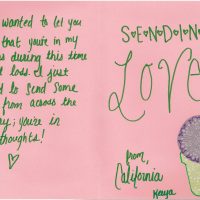 wanted to let you
that you're in my
during this time
loss. I just
to send some
from across the
you're in
thoughts!
S•E•N•D•I•N
LOVE
from,
California
Kaya